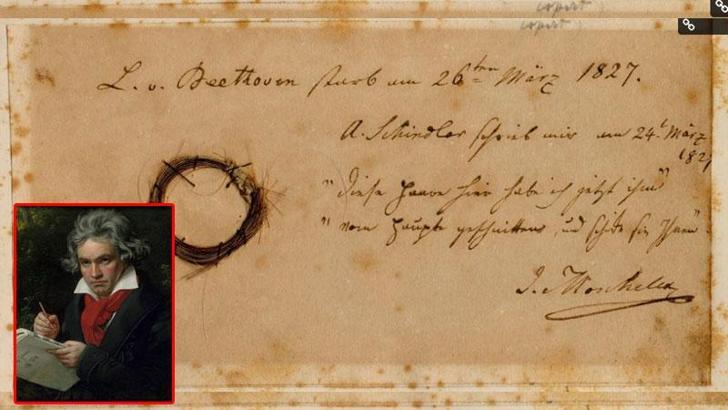 L. v. Beethoven starb am 26ten März 1827.
A. Schindler schrieb mir am 24t März
182
" Diese Haare hier habe ich jetzt ihm"
" vom Haupte geschnitten, und schicke sie Ihnen.
I. Moscheles